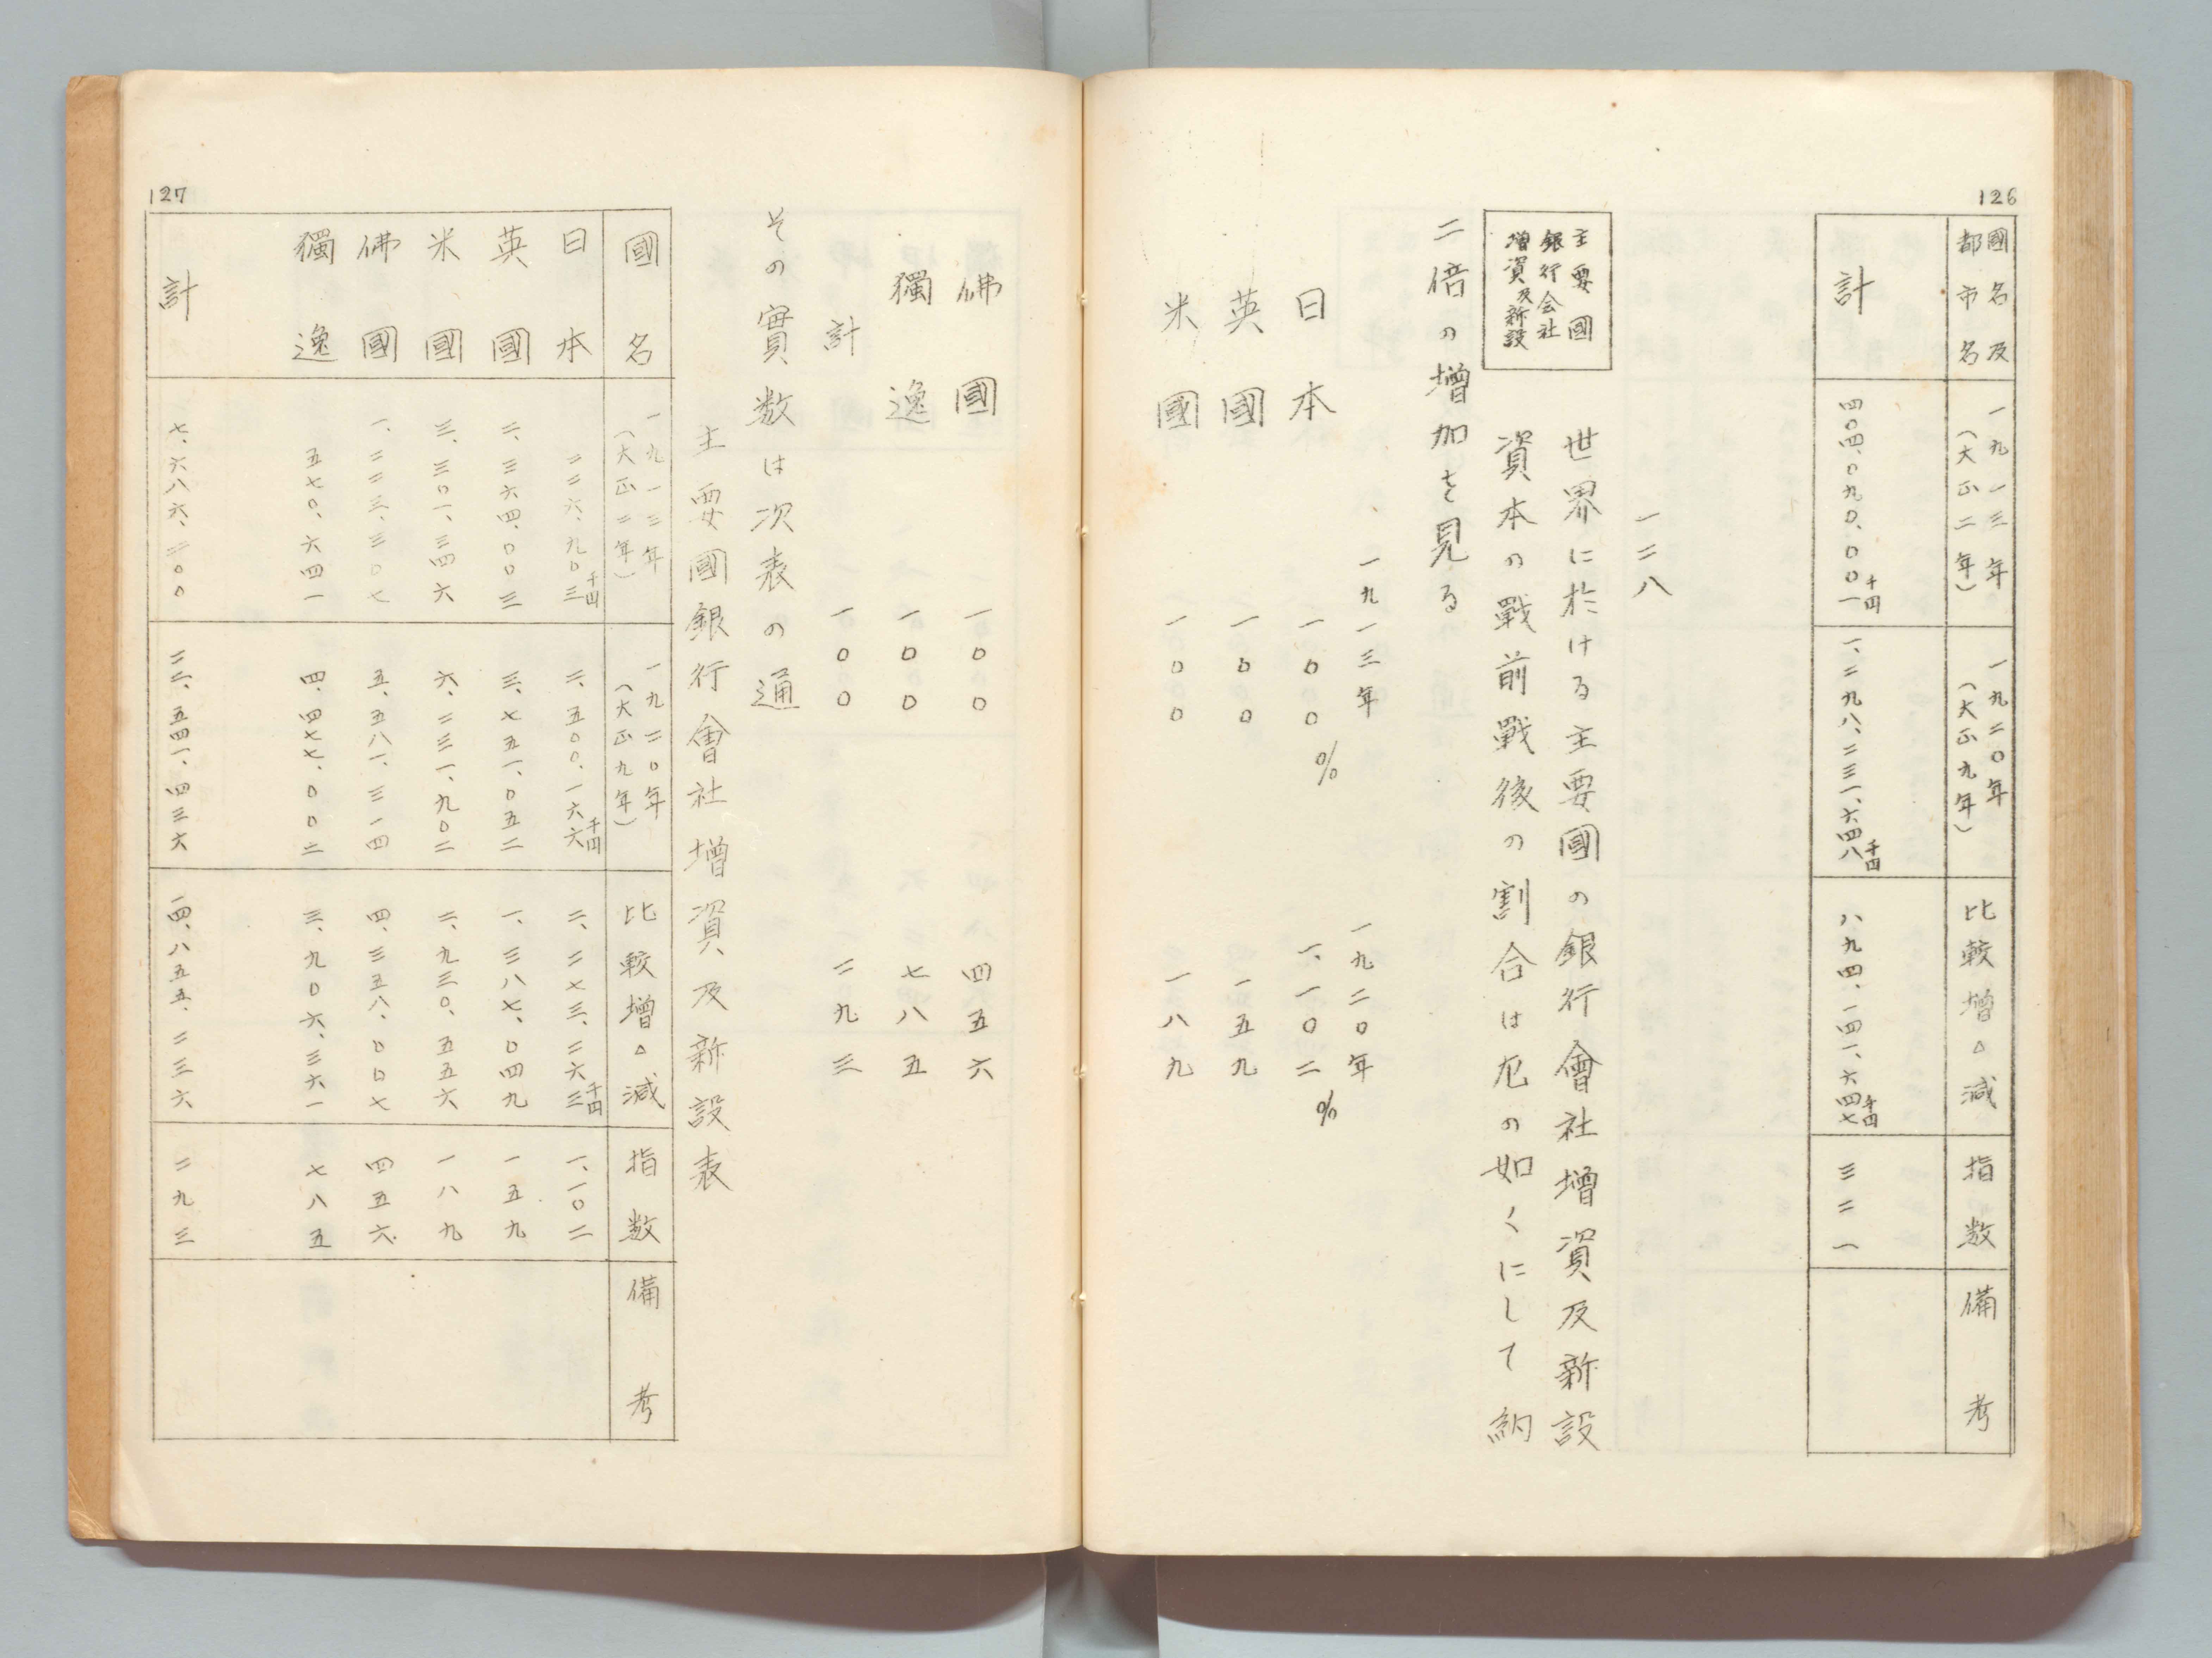 126
國名及
都市名
一九一三年
(大正二年)
一九二〇年
(大正九年)
比較増△減
指数
備考
計
四〇四、〇九〇、〇〇一千円
一、二九八、二三一、六四八千円
八九四、一四一、六四七千円
三二一
一二八
主要國
銀行会社
増資及新設
世界に於ける主要國の銀行會社増資及新設
資本の戰前戰後の割合は左の如くにして約
二倍の増加を見る
一九一三年 一九二〇年
日本 一〇〇% 一、一〇二%
英國 一〇〇 一五九
米國 一〇〇 一八九
佛國 一〇〇 四五六
獨逸 一〇〇 七八五
計 一〇〇 二九三
その實数は次表の通
主要國銀行會社増資及新設表
127
國名
一九一三年
(大正二年)
一九二〇年
(大正九年)
比較増△減
指数
備考
日本 二二六、九〇三千円 二、五〇〇、一六六千円 二、二七三、二六三千円 一、一〇二
英國 二、三六四、〇〇三 三、七五一、〇五二 一、三八七、〇四九 一五九
米國 三、三〇一、三四六 六、二三一、九〇二 二、九三〇、五五六 一八九
佛國 一、二二三、三〇七 五、五八一、三一四 四、三五八、〇〇七 四五六
獨逸 五七〇、六四一 四、四七七、〇〇二 三、九〇六、三六一 七八五
計 七、六八六、二〇〇 二二、五四一、四三六 一四、八五五、二三六 二九三